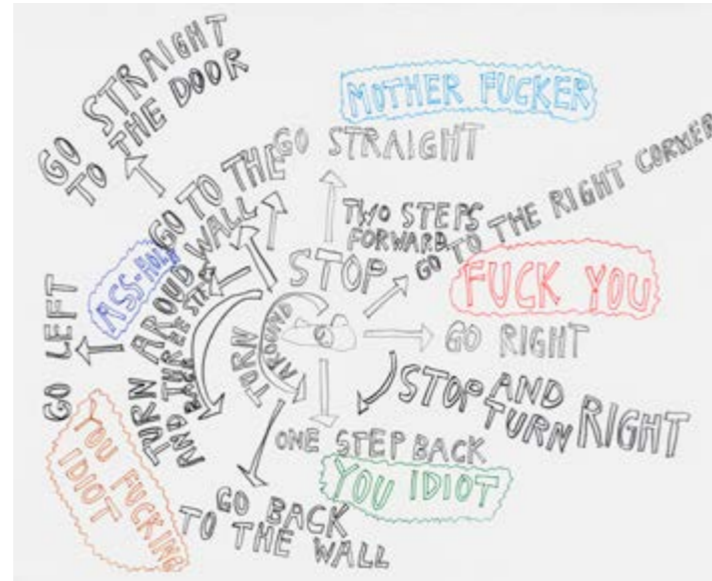 GO STRAIGHT
TO THE DOOR
MOTHER FUCKER
GO STRAIGHT
GO TO THE
WALL
TWO STEPS
FORWARD
GO TO THE RIGHT CORNER
STOP
ASS-HOLE
FUCK YOU
TURN
AROUND
GO RIGHT
GO LEFT
TURN AROUD
AND THREE STEPS
BACK
STOP AND
TURN RIGHT
ONE STEP BACK
YOU IDIOT
YOU FUCKING
IDIOT
GO BACK
TO THE WALL